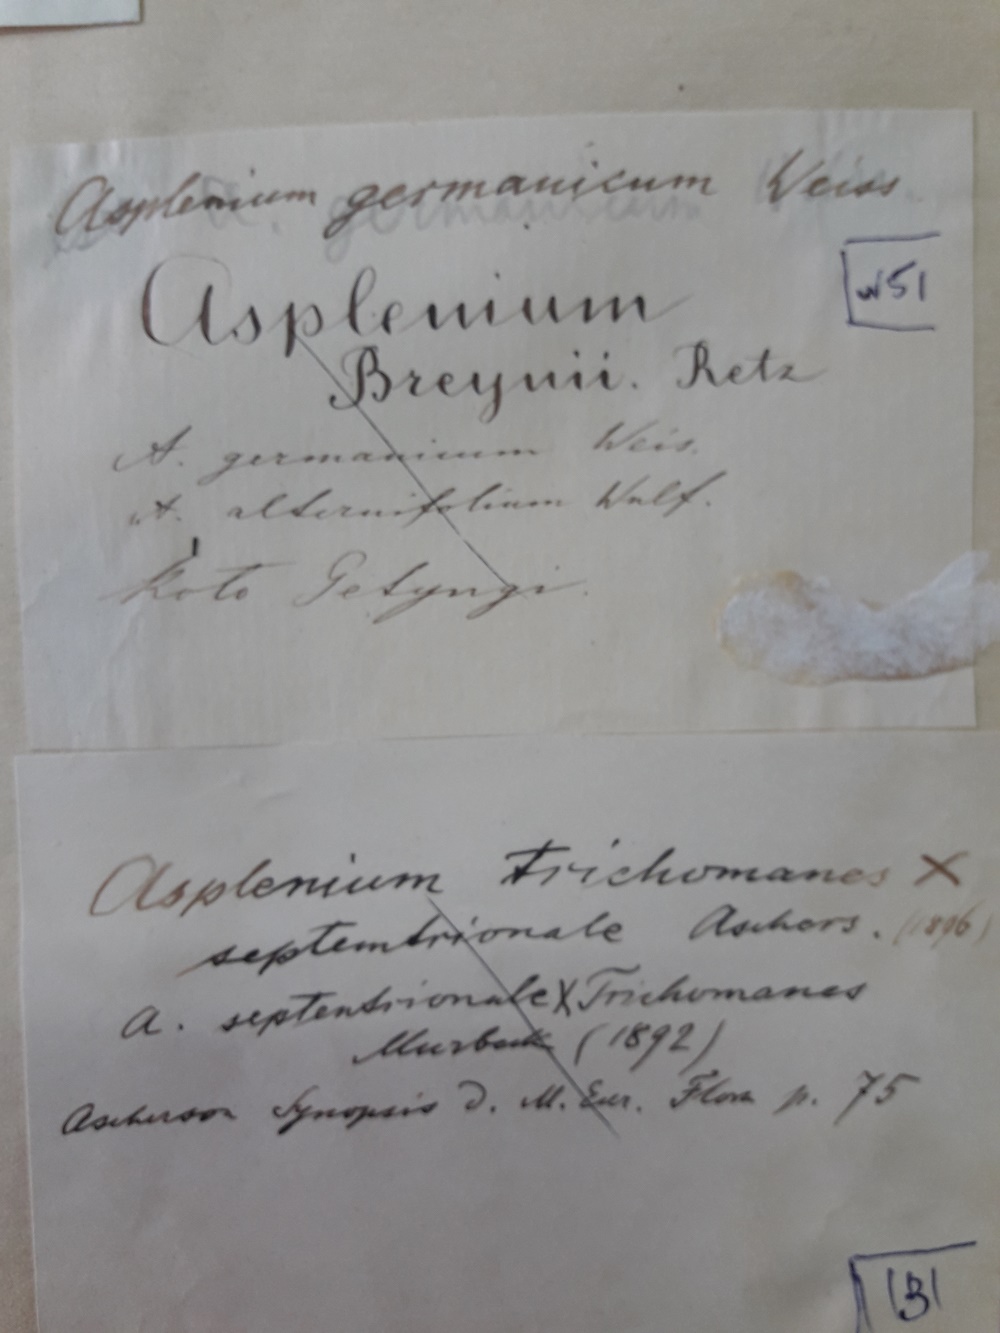 Asplenium germanicum Weiss
w51
Asplenium
Breynii. Retz
A. germanicum Weis.
A. alternifolium Wulf.
Koto Getyngi.
Asplenium trichomanes X
septemtrionale Aschers. (1896)
A. septentrionale X Trichomanes
Murbeck (1892)
Ascherson Synopsis d. M. Eur. Flora p. 75
131